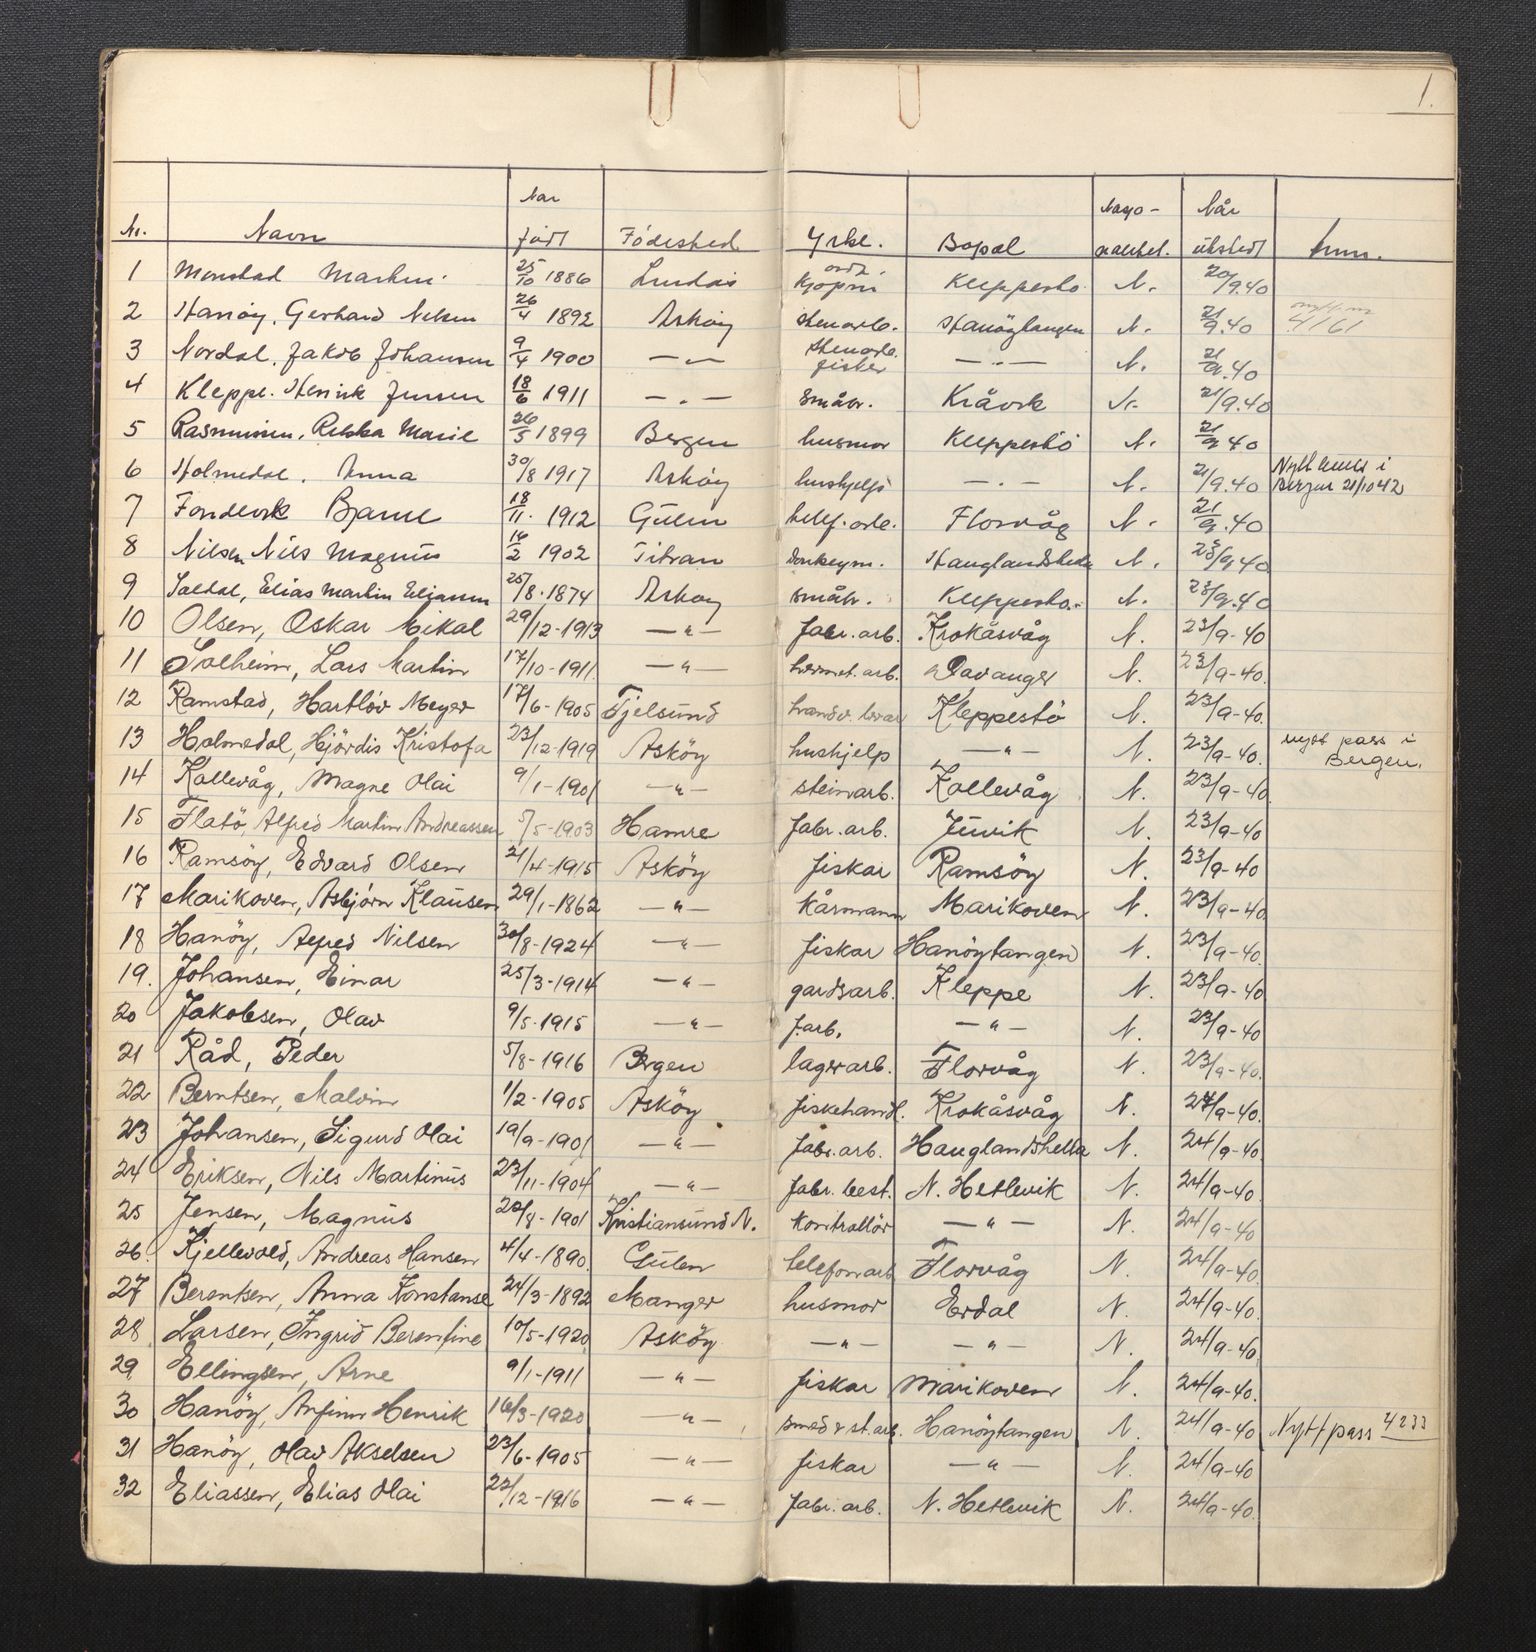 1.
Nr. Navn Når født Födested Yrke. Bopæl Nasjonalitet. Når utstedt Anm.
1 Monstad Martin. 25/10 1886 Lindås Kleppestø N. 20/9.40
2 Hanöy, Gerhard Nilsen 26/4 1892 Asköy stenarb. Hanöytangen N. 21/9.40 nytt nr 4161
3 Nordal, Jakob Johansen 9/4 1900 — " — stenarb. fisker — " — N. 21/9.40
4 Kleppe. Henrik Jensen 18/6 1911 — " — småbr. N. 21/9.40
5 Rasmussen, Marie 26/5 1899 Bergen husmor Kleppestö N. 21/9 40
6 Holmedal. Anna 30/8 1917 Asköy hushjelp — " — N. 21/9.40 Nytt i Bergen 21/10 42
7 Bjarne 18/11. 1912 Gulen telef. arb. Florvåg N. 21/9.40
8 Nilsen Nils Magnus 16/2 1902 Titran donkeym. Hauglandshella N. 23/9 40
9 Elias Martin Eliassen 25/8. 1874 Asköy småbr. Kleppestö. N. 23/9.40
10 Olsen, Oskar Mikal 29/12-1913 — " — fabr. arb. Krokåsvåg N. 23/9-40
11 Solheim, Lars Martin 17/10-1911. — " — hermet. arb. Davanger N. 23/9-40.
12 Ramstad, Hartløv Meyer 17/6-1905 Tjelsund Kleppestö N. 23/9-40.
13 Holmedal, Hjördis Kristofa 23/12-1919 Asköy hushjelp — " — N. 23/9-40. nytt pass i Bergen.
14 Kollevåg, Magne Olai 9/1-1901 — " — steinarb. Kollevåg N. 23/9-40.
15 Flatö, Alfred Martin Andreassen 5/5-1903 Hamre fabr. arb. Juvik N. 23/9-40
16 Ramsöy, Edvard Olsen 21/4-1915 Asköy fiskar Ramsöy N. 23/9-40
17 Marikoven, Asbjörn Klausen 29/1-1862 — " — kårmann Marikoven N. 23/9-40
18 Hanöy, Alfred Nilsen 30/8-1924 — " — fiskar Hanöytangen N. 23/9-40.
19. Johansen, Einar 25/3-1914 — " — gardsarb. Kleppe N. 23/9-40
20 Jakobsen, Olav 9/5-1915 — " — f.arb. — " — N. 23/9-40
21 Råd, Peder 5/8-1916 Bergen lagerarb. Florvåg N. 23/9-40.
22 Berntsen, Malvin 1/2-1905 Asköy fiskehandl. Krokåsvåg N. 24/9-40.
23 Johansen, Sigurd Olai 19/9-1901 — " — fabr. arb. Hauglandshella N. 24/9-40.
24 Eriksen, Nils Martinus 23/11-1904 — " — fabr. best. N. Hetlevik N. 24/9-40.
25 Jensen, Magnus 20/8-1901 Kristiansund N. kontrollör — " — N. 24/9-40
26. Kjellevold, Andreas Hansen 4/4-1890. Gulen telefonarb Florvåg N. 24/9-40.
27 Berentsen, Anna Konstanse 24/3-1892 Manger husmor Erdal N. 24/9-40.
28 Larsen, Ingrid Berentine 10/5-1920 Asköy — " — — " — N. 24/9-40
29 Ellingsen, Arne 9/1-1911 — " — fiskar Marikoven N. 24/9-40.
30 Hanöy, Arfinn Henrik 16/3-1920 — " — smed & st.arb. Hanöytangen N. 24/9-40 Nytt pass 4233
31 Hanöy, Olav Akselsen 23/6-1905 — " — fiskar — " — N. 24/9-40
32 Eliassen, Elias Olai 22/12-1916 — " — fabr. arb. N. Hetlevik N. 24/9-40.